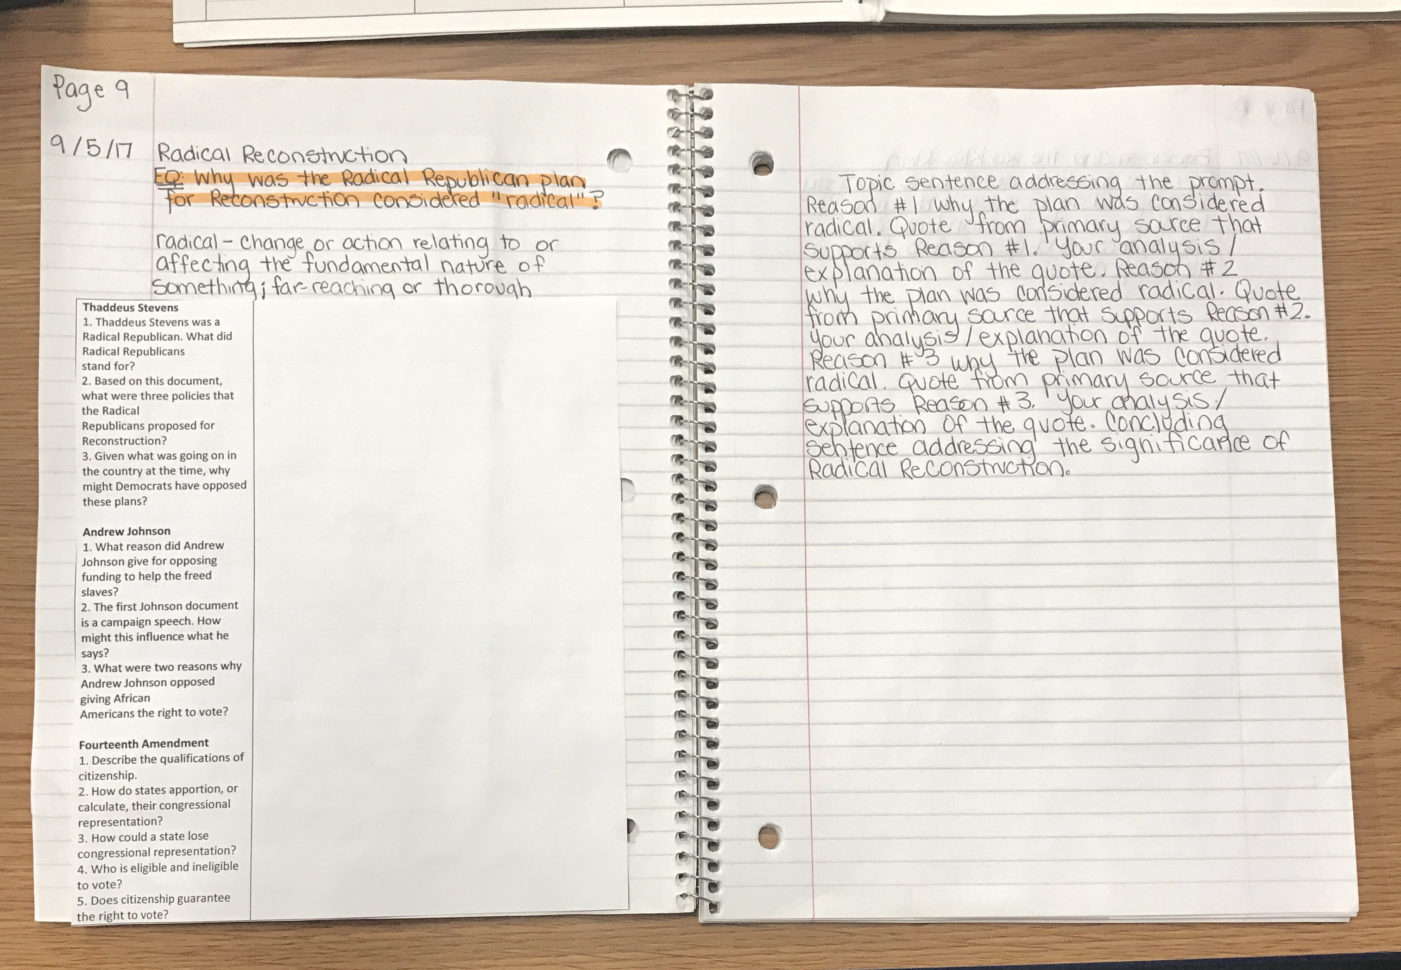 Page 9
9/5/17 Radical Reconstruction
EQ: Why was the Radical Republican plan
for Reconstruction considered "radical"?
radical - change or action relating to or
affecting the fundamental nature of
something; far-reaching or thorough
Thaddeus Stevens
1. Thaddeus Stevens was a
Radical Republican. What did
Radical Republicans
stand for?
2. Based on this document,
what were three policies that
the Radical
Republicans proposed for
Reconstruction?
3. Given what was going on in
the country at the time, why
might Democrats have opposed
these plans?
Andrew Johnson
1. What reason did Andrew
Johnson give for opposing
funding to help the freed
slaves?
2. The first Johnson document
is a campaign speech. How
might this influence what he
says?
3. What were two reasons why
Andrew Johnson opposed
giving African
Americans the right to vote?
Fourteenth Amendment
1. Describe the qualifications of
citizenship.
2. How do states apportion, or
calculate, their congressional
representation?
3. How could a state lose
congressional representation?
4. Who is eligible and ineligible
to vote?
5. Does citizenship guarantee
the right to vote?
Topic sentence addressing the prompt.
Reason #1 why the plan was considered
radical. Quote from primary source that
supports Reason #1. Your analysis/
explanation of the quote. Reason #2
why the plan was considered radical. Quote
from primary source that supports Reason #2.
Your analysis/explanation of the quote.
Reason #3 why the plan was considered
radical. Quote from primary source that
supports Reason #3. Your analysis/
explanation of the quote. Concluding
sentence addressing the significance of
Radical Reconstruction.